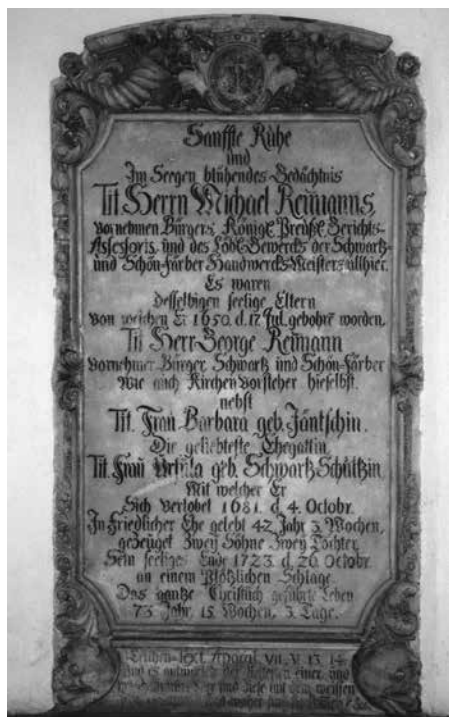 Sanffte Ruhe
und
Im Seegen blühendes Gedächtnis
Tit. Herrn Michael Reimanns,
Vornehmen Bürgers, Königl. Preüßl. Gerichts-
Assessoris, und des Löbl. Gewercks der Schwartz-
und Schön-Färber Handwercks-Meisters allhier.
Es waren
desselbigen seelige Eltern
Von welchen Er 1650. d. 17. Jul. gebohrē worden,
Tit. Herr George Reimann
Vornehmer Bürger, Schwartz und Schön-Färber
Wie auch Kirchen Vorsteher hieselbst.
nebst
Tit. Frau Barbara geb. Jäntschin.
Die geliebteste Ehegattin
Tit. Frau Ursula geb. Schwartz-Schültzin.
Mit welcher Er
Sich verlobet 1681. d. 4. Octobr.
In Friedlicher Ehe gelebt 42 Jahr 3. Wochen,
gezeüget Zwey Söhne Zwey Töchter,
Sein seeliges Ende 1723. d. 26 Octobr.
an einem Plötzlichen Schlage.
Das gantze Christlich geführte Leben
73. Jahr. 15. Wochen, 3. Tage.
Leichen-Text. Apocal. VII. V. 13. 14.
Und es antwortete der Eltesten einer und
diese mit dem weissen